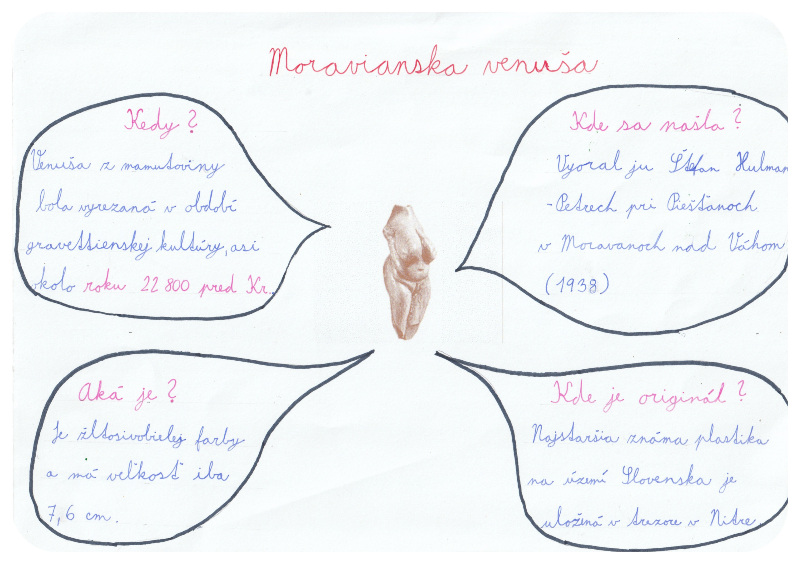 Moravianska venuša
Kedy?
Venuša z mamutoviny
bola vyrezaná v období
gravettienskej kultúry, asi
okolo roku 22 800 pred Kr.
Kde sa našla?
Vyoral ju Štefan Hulman
-Petrech pri Piešťanoch
v Moravanoch nad Váhom
(1938)
Aká je?
Je žltosivobielej farby
a má veľkosť iba
7,6 cm.
Kde je originál?
Najstaršia známa plastika
na území Slovenska je
uložená v trezore v Nitre